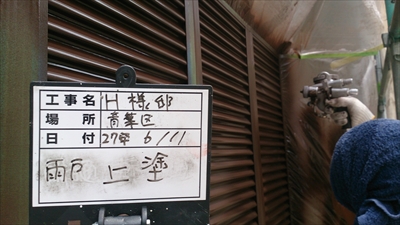 工事名 H様邸
場所 青葉区
日付 27年 6/11
雨戸 上塗